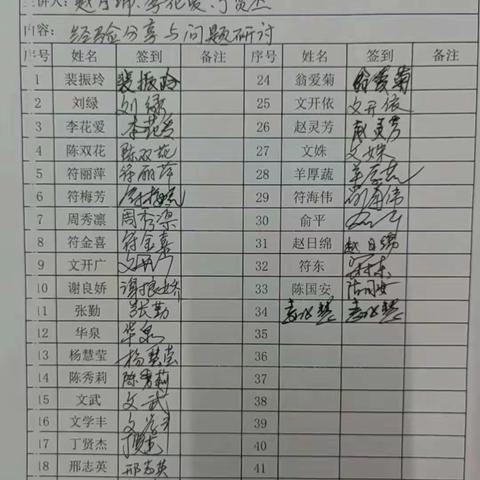 内容: 经验分享与问题研讨
序号 姓名 签到 备注 序号 姓名 签到 备注
1 裴振玲 裴振玲 24 翁爱菊 翁爱菊
2 刘绿 刘绿 25 文开依 文开依
3 李花爱 李花爱 26 赵灵芳 赵灵芳
4 陈双花 陈双花 27 文姝 文姝
5 符丽萍 符丽萍 28 羊厚蔬
6 符梅芳 符梅芳 29 符海伟 符海伟
7 周秀凛 周秀凛 30 俞平
8 符金喜 符金喜 31 赵日绵 赵日绵
9 文开广 文开广 32 符东 符东
10 谢良娇 谢良娇 33 陈国安 陈国安
11 张勤 张勤 34
12 华泉 华泉 35
13 杨慧莹 杨慧莹 36
14 陈秀莉 陈秀莉 37
15 文武 文武 38
16 文学丰 文学丰 39
17 丁贤杰 丁贤杰 40
18 邢志英 邢志英 41